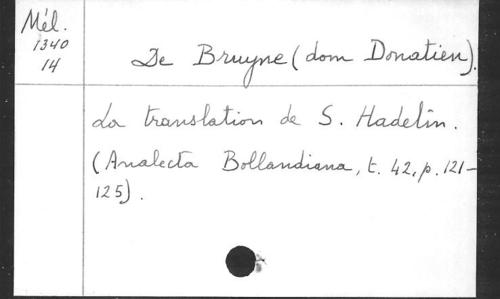 Mél.
1340
14
De Bruyne (dom Donatien).
La translation de S. Hadelin.
(Analecta Bollandiana, t. 42, p. 121-
125).